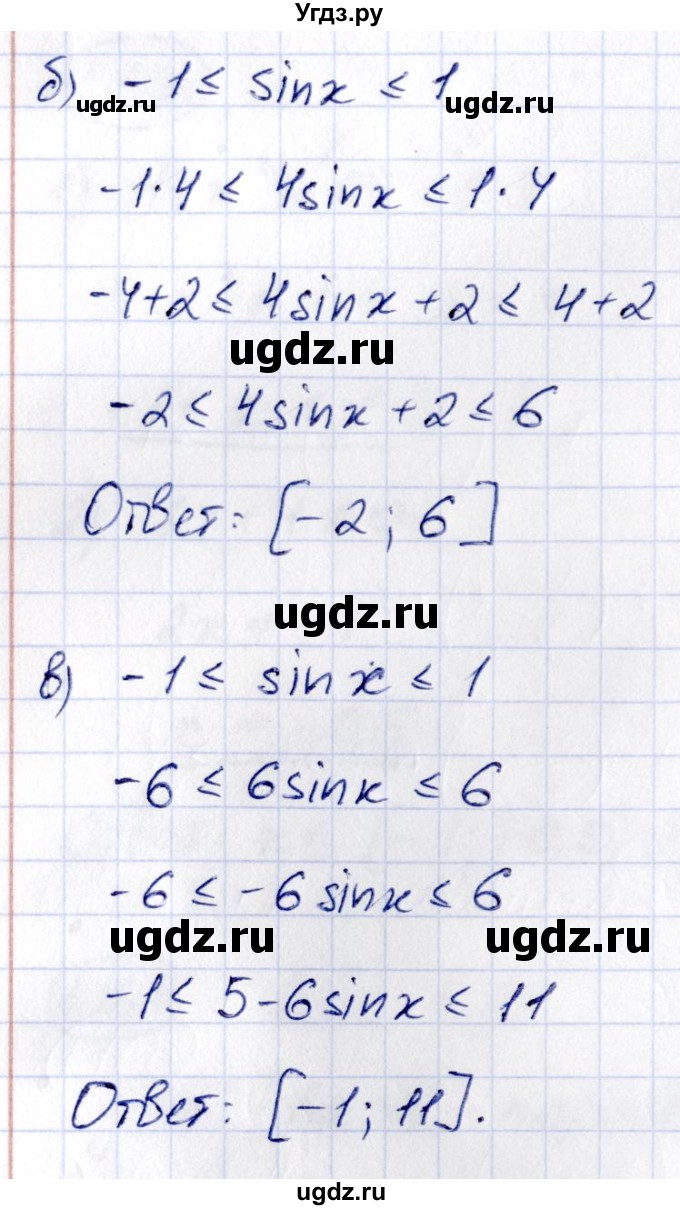 Угдз.ру
б) -1 ≤ sinx ≤ 1
ugdz.ru ugdz.ru
-1·4 ≤ 4sinx ≤ 1·4
-4+2 ≤ 4sinx + 2 ≤ 4+2
ugdz.ru
-2 ≤ 4sinx + 2 ≤ 6
Ответ: [-2; 6]
ugdz.ru
в) -1 ≤ sinx ≤ 1
-6 ≤ 6sinx ≤ 6
-6 ≤ -6sinx ≤ 6
ugdz.ru ugdz.ru
-1 ≤ 5-6sinx ≤ 11
Ответ: [-1; 11].
ugdz.ru